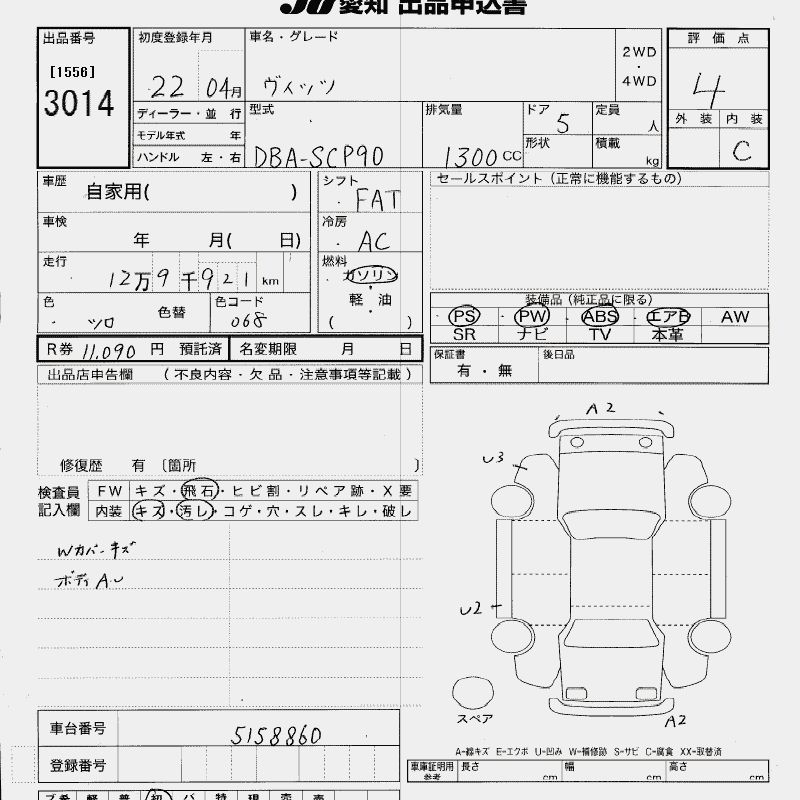 JU 愛知 出品申込書
出品番号
[1556]
3014
初度登録年月
22 04月
ディーラー・並 行
モデル年式 年
ハンドル 左・右
車名・グレード
ヴィッツ
2WD
・
4WD
型式
DBA-SCP90
排気量
1300 CC
ドア 5
形状
定員 人
積載 kg
評 価 点
4
外 装 内 装
C
車歴
自家用( )
車検
年 月( 日)
走行
12万9千921 km
色
ツロ
色替
色コード
068
シフト
FAT
冷房
AC
燃料
ガソリン
・
軽・油
( )
セールスポイント (正常に機能するもの)
装備品 (純正品に限る)
PS・PW・ABS・エアB AW
SR ナビ TV 本革
R券 11,090 円 預託済 名変期限 月 日
保証書
有・無
後日品
出品店申告欄 (不良内容・欠品・注意事項等記載)
修復歴 有 〔箇所 〕
検査員
記入欄
FW キズ・飛石・ヒビ割・リペア跡・X要
内装 キズ・汚レ・コゲ・穴・スレ・キレ・破レ
Wカバーキズ
ボディAU
A2
U3
U2
スペア
A2
A-線キズ E-エクボ U-凹み W-補修跡 S-サビ C-腐食 XX-取替済
車台番号
5158860
登録番号
車庫証明用
参考
長さ cm
幅 cm
高さ cm